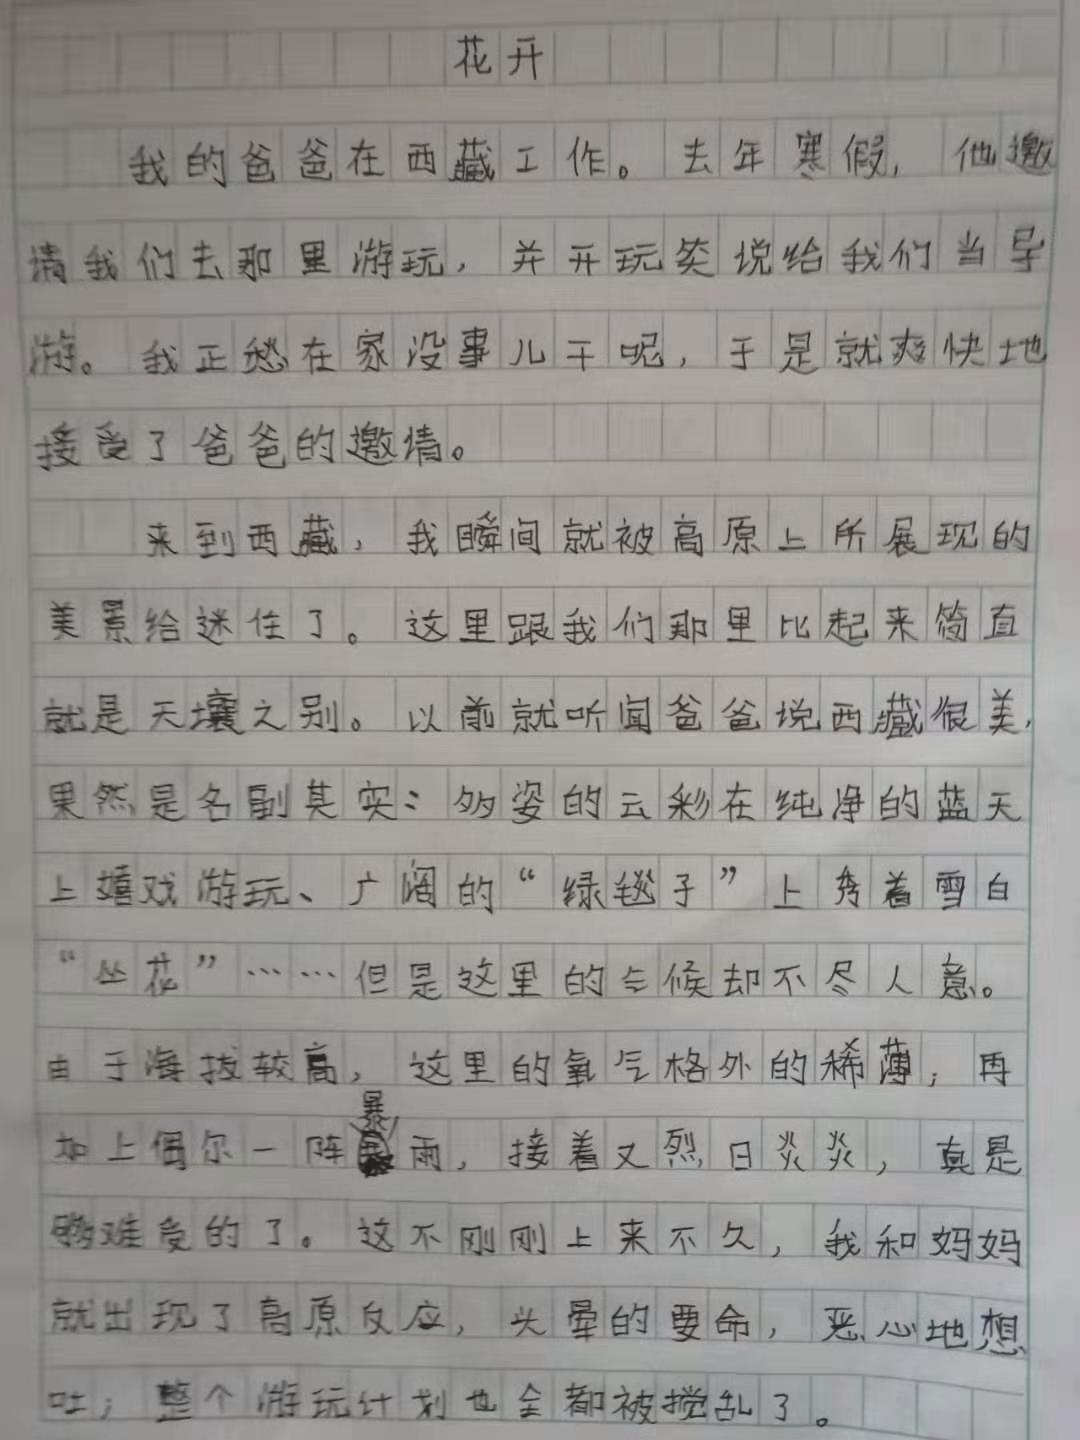 花开
我的爸爸在西藏工作。去年寒假，他邀
请我们去那里游玩，并开玩笑说给我们当导
游。我正愁在家没事儿干呢，于是就爽快地
接受了爸爸的邀请。
来到西藏，我瞬间就被高原上所展现的
美景给迷住了。这里跟我们那里比起来简直
就是天壤之别。以前就听闻爸爸说西藏很美，
果然是名副其实：多姿的云彩在纯净的蓝天
上嬉戏游玩、广阔的“绿毯子”上秀着雪白
“丛花”……但是这里的气候却不尽人意。
由于海拔较高，这里的氧气格外的稀薄；再
加上偶尔一阵暴雨，接着又烈日炎炎，真是
够难受的了。这不刚刚上来不久，我和妈妈
就出现了高原反应，头晕的要命，恶心地想
吐；整个游玩计划也全都被搅乱了。